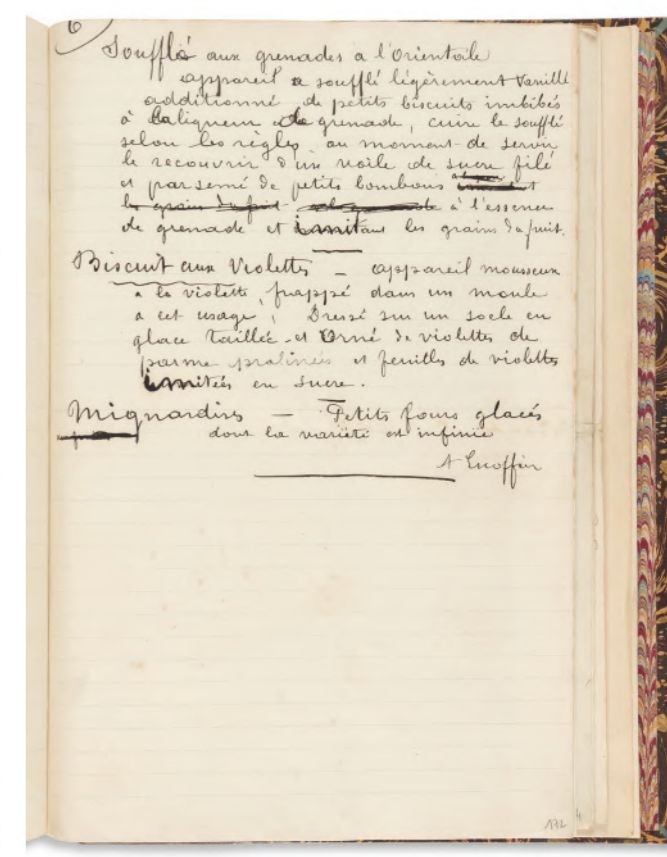 6
Soufflé aux grenades a l'Orientale
appareil a soufflé légèrement Vanillé
additionné de petits biscuits imbibés
à la liqueur de grenade, cuire le soufflé
selon les règles, au moment de servir
le recouvrir d'un voile de sucre filé
et parsemé de petits bombons
à l'essence
de grenade et imitant les grains du fruit.
Biscuit aux Violettes — appareil mousseux
a la violette, frappé dans un moule
a cet usage, Dressé sur un socle en
glace taillée et Orné de violettes de
parme pralinées et feuilles de violettes
imitées en sucre.
Mignardises — Petits fours glacés
dont la variété est infinie
A Escoffier
172
4